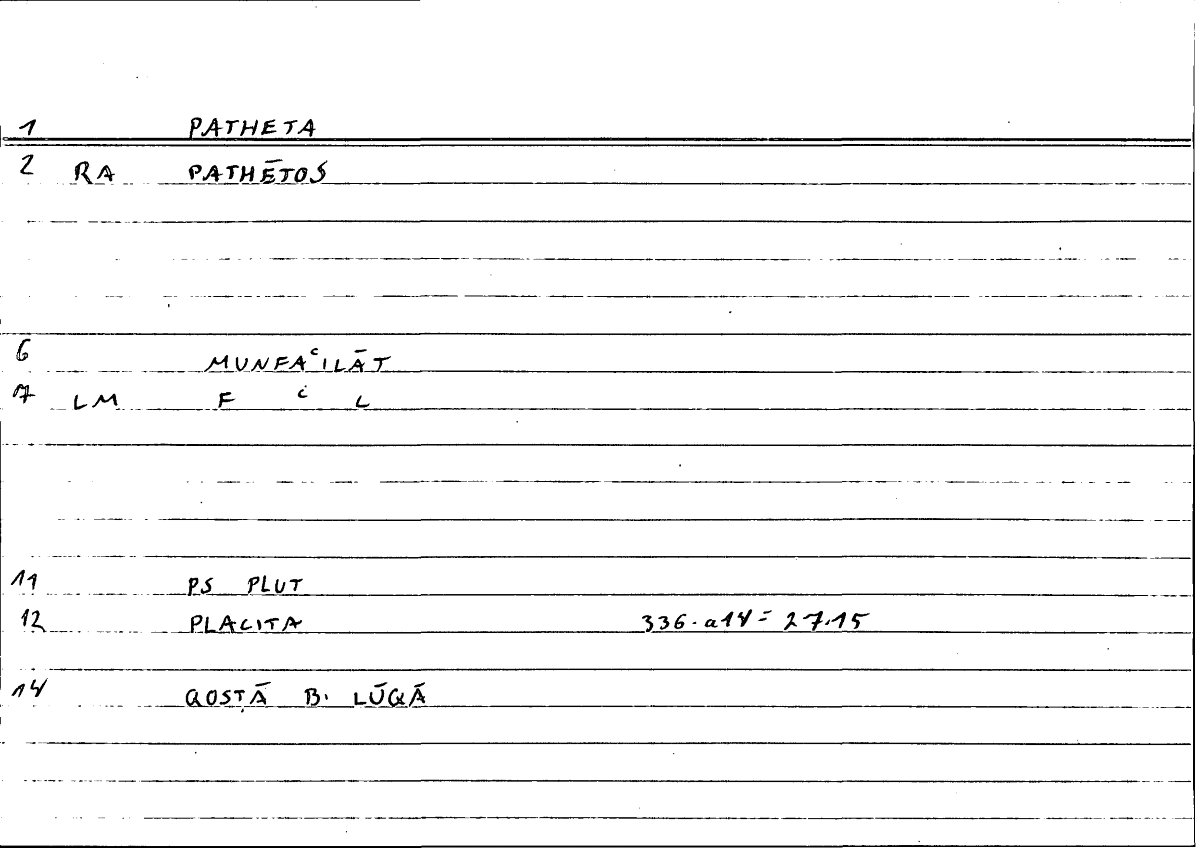 1 PATHETA
2 RA PATHĒTOS
6 MUNFAʿILĀT
7 LM F ʿ L
11 PS PLUT
12 PLACITA 336.a14 = 27.15
14 QOSṬĀ B. LŪQĀ